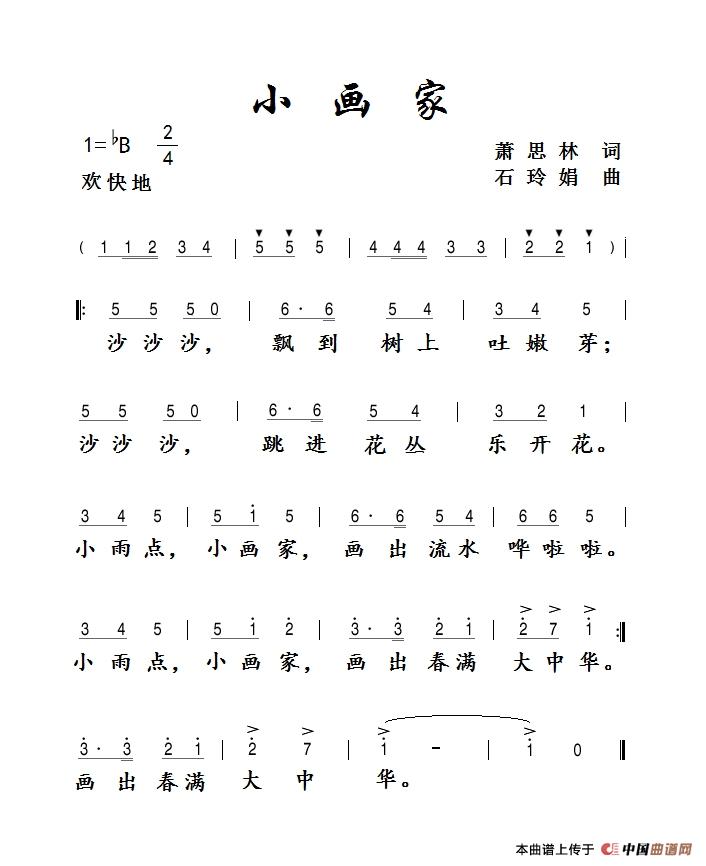 小画家
1=♭B 2/4
萧思林 词
欢快地
石玲娟 曲
( 1 1 2 3 4 | 5 5 5 | 4 4 4 3 3 | 2 2 1 ) |
‖: 5 5 5 0 | 6 · 6 5 4 | 3 4 5 |
沙沙沙， 飘到 树上 吐嫩芽；
5 5 5 0 | 6 · 6 5 4 | 3 2 1 |
沙沙沙， 跳进 花丛 乐开花。
3 4 5 | 5 1̇ 5 | 6 · 6 5 4 | 6 6 5 |
小雨点， 小画家， 画出流水 哗啦啦。
3 4 5 | 5 1̇ 2̇ | 3̇ · 3̇ 2̇ 1̇ | 2̇ 7 1̇ :‖
小雨点， 小画家， 画出春满 大中华。
3̇ · 3̇ 2̇ 1̇ | 2̇ 7 | 1̇ － | 1̇ 0 ‖
画出春满 大中 华。
本曲谱上传于 中国曲谱网